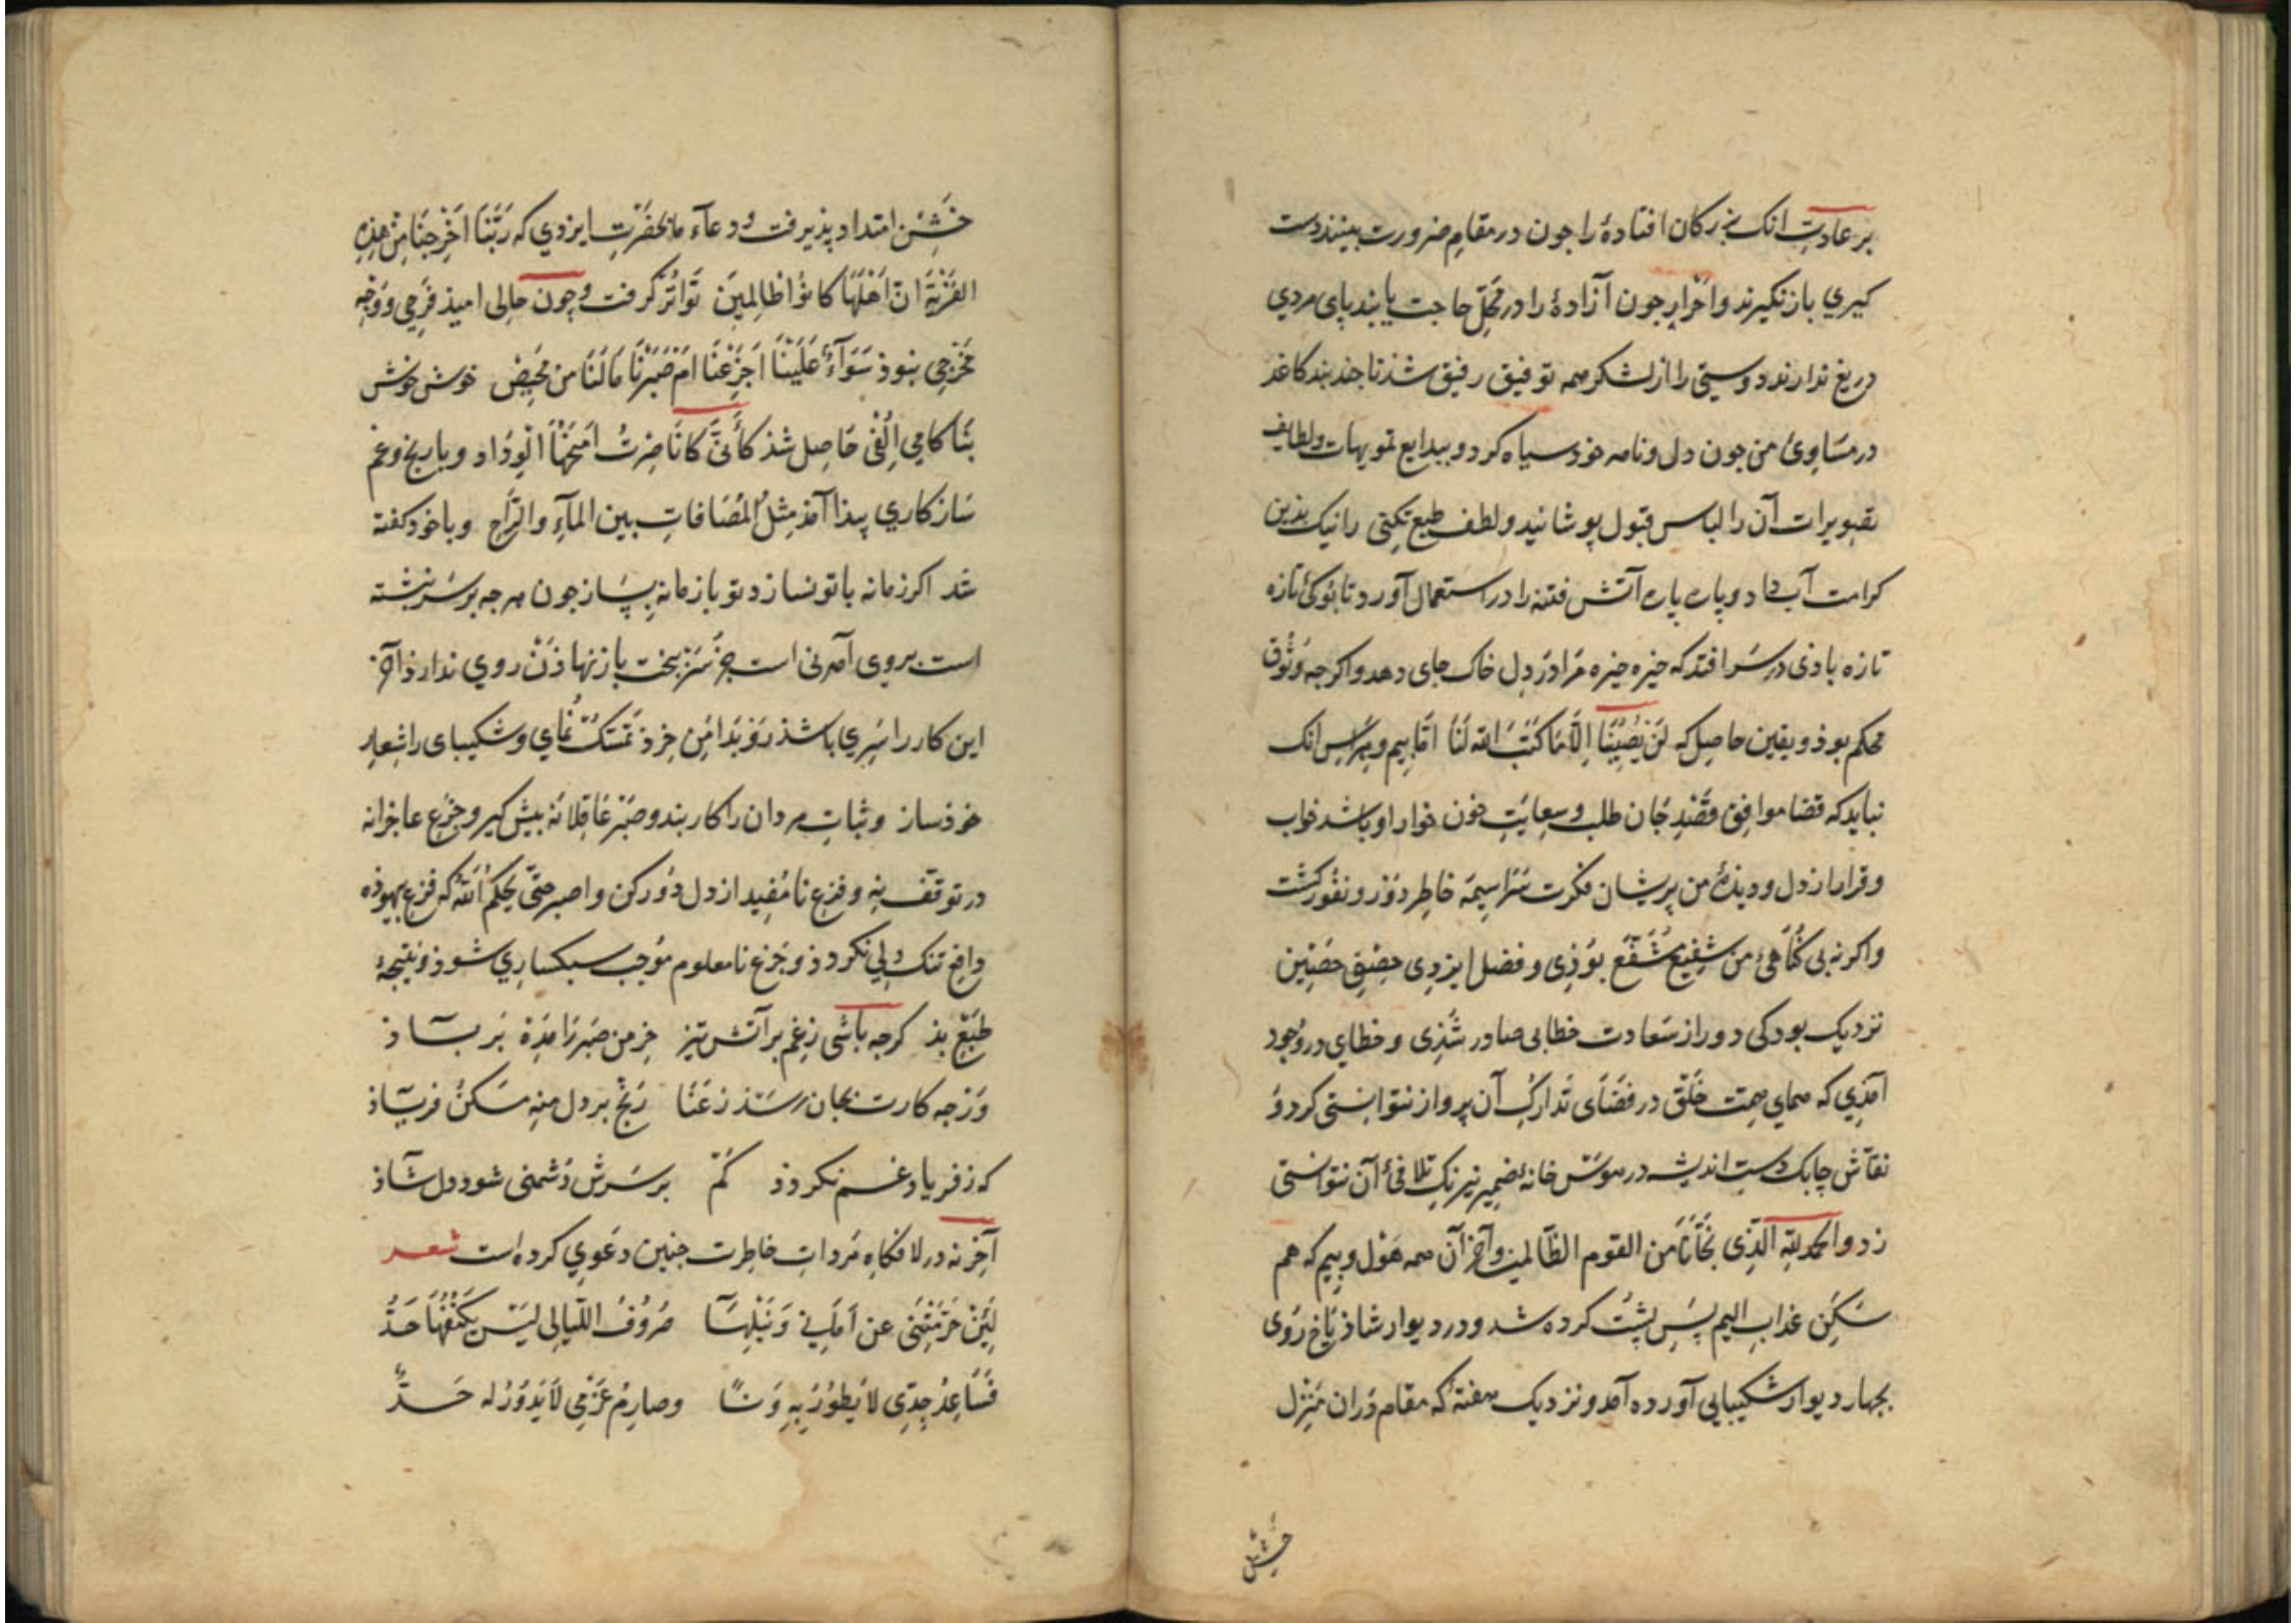 بر عادت انک بزرکان افتادهٔ را جون در مقام ضرورت بینند دست
کیری باز نکیرند و احرار جون آزادهٔ را در محل حاجت یابند پای مردی
دریغ ندارند دوستی را از لشکر همه توفیق رفیق شذ تا جند بند کاغذ
در مساوی من جون دل و نامه خود سیاه کرد و ببدایع تمویهات و لطایف
تصویرات آن را لباس قبول پوشانید و لطف طبع تکتی را نیک بذین
کرامت آب داد و پاره پاره آتش فتنه را در استعمال آورد تا بنوکی تازه
تازه باذی در سر افتد که خیره خیره مرا در دل خاک جای دهد و اکر جه وثوق
محکم بوذ و یقین حاصل که لَنْ یُصِیبَنَا اِلَّا مَا کَتَبَ الله لَنَا اما بیم و هراس انک
نباید که قضا موافق قصد جان طلب و سعایت خون خوار او باشد خواب
و قرار از دل و دیذهٔ من پریشان فکرت سراسیمه خاطر دور و نفور کشت
و اکر نه بی کناهی من شفیع مشفع بوذی و فضل ایزدی حصن حصین
نزدیک بود کی دور از سعادت خطابی صادر شذی و خطای در وجود
آمذی که همای همت خلق در فضای تدارک آن پرواز نتوانستی کرد و
نقاش چابک دست اندیشه در هوس خانهٔ ضمیر نیرنک تلافی آن نتوانستی
زد و الحمد لله الذی نجّانا من القوم الظالمین و آخر آن همه هول و بیم که هم
سکن عذاب الیم پس پشت کرده شد و در دیوار شاذیاخ روی
بجهار دیوار شکیبایی آورده آمد و نزدیک هفتهٔ که مقام دران منزل
خشن
خشن امتداد پذیرفت و دعاء ما بحضرت ایزدی که رَبَّنَا اَخْرِجْنَا مِنْ هذِهِ
القَرْیَةِ انّ اَهْلَهَا کانوُا ظالِمینَ تواتر کرفت و چون حالی امیذ فرجی و وجه
مخرجی نبوذ سَوَآءٌ عَلَیْنَا اَجَزِعْنَا اَمْ صَبَرْنَا مَا لَنَا من مَحِیصٍ خوش خوش
بنا کامی الفی حاصل شذ و با رنج و غم
ساز کاری پیذا آمذ مثل المصافات بین المآءِ والرّاح و با خود کفته
شد اکر زمانه با تو نسازد تو با زمانه بساز جون هر جه بر سر نبشته
است بروی آمدنی است جز سر زبخت باز نهاذن روی ندارذ آخر
این کار را سری باشذ رو بدامن خرذ تمسک نمای و شکیبای را شعار
خوذ ساز و ثبات مردان را کار بند و صبر عاقلانه پیش کیر و جزع عاجزانه
در توقف نه و فزع نا مفید از دل دور کن و اصبر حتّی یحکم الله که فزع بیهوذه
دافع تنک دلی نکردذ و جزع نامعلوم موجب سبکساری شوذ و نتیجهٔ
طبع بذ کرجه باشی زغم بر آتش تیز خرمن صبر را مده بر باذ
ورجه کارت بجان رسذ ز عنا رنج بر دل منه مکن فریاذ
که ز فریاد غم نکردذ کم بر سرش دشمنی شود دل شاذ
آخر نه در لافکاه مردات خاطرت جنین دعوی کرده است شعر
لَئِنْ حَرَمَتْنی عن اَمَانی وَ نَیْلِهَا صُرُوفُ اللّیالی لیس یکنفها حَدُّ
فَسَاعِدُ جِدّی لا یَطُورُ بِهِ وَنًا وصارمُ عَزْمی لا یَدُورُ له حَدُّ